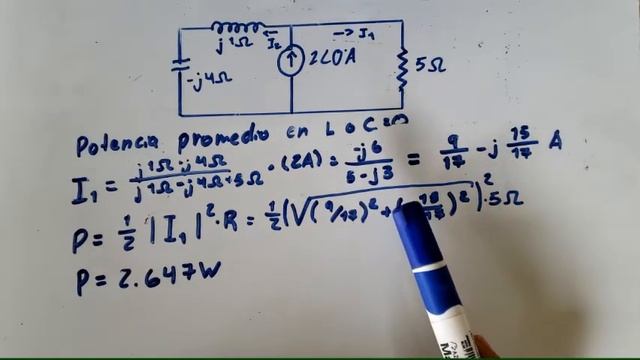 j1Ω I2 -> I1
-j4Ω 2∠0°A 5Ω
Potencia promedio en L o C = 0
I1 = (j1Ω - j4Ω)/(j1Ω - j4Ω + 5Ω) · (2A) = -j6/(5 - j3) = 9/17 - j 15/17 A
P = 1/2 |I1|² · R = 1/2 (√((9/17)² + ( 15/17)²))² · 5Ω
P = 2.647W